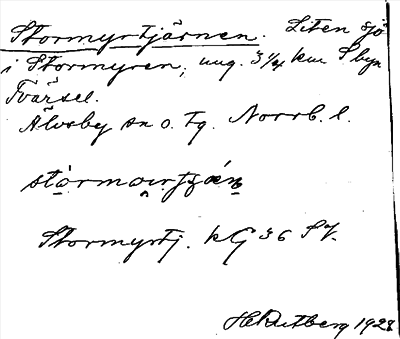 Stormyrtjärnen. Liten sjö
i Stormyren, ung. 3 1/4 km S byn
Tvärsel.
Älvsby sn o. tg. Norrb. l.
Stormyrtj. kG 36 SV.
1928